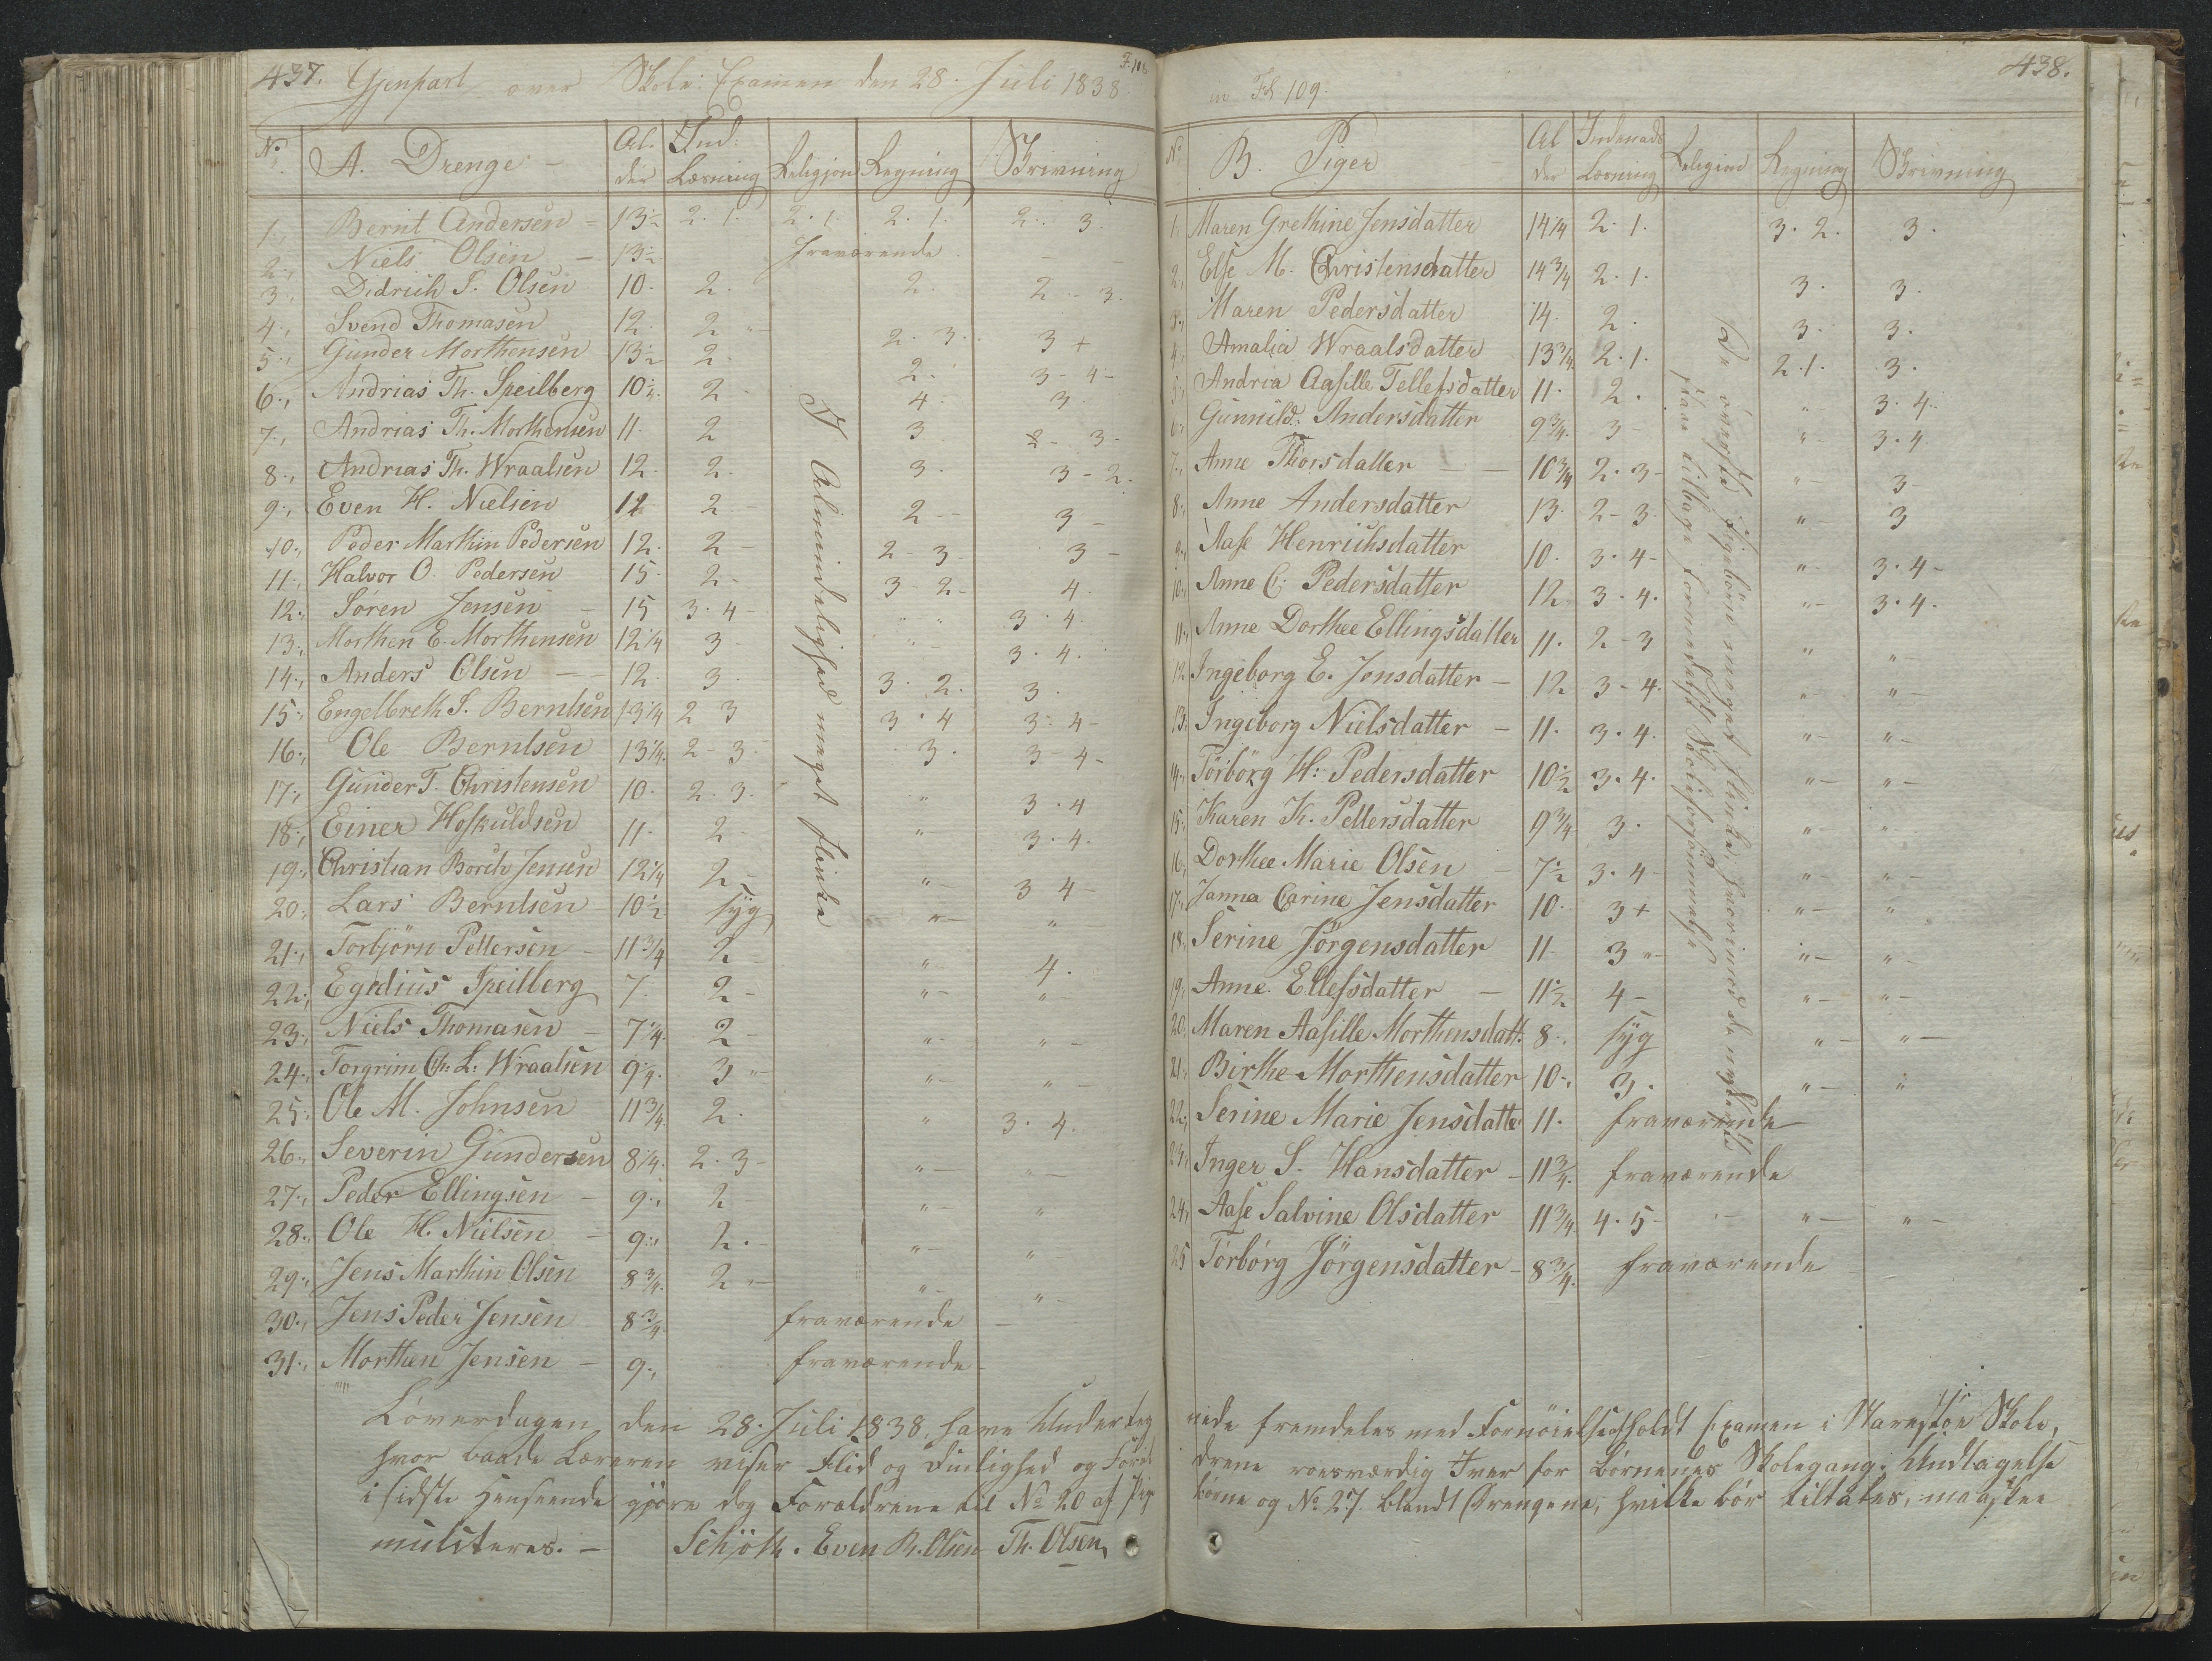 437. Gjenpart over Skole: Examen den 28. Juli 1838. F. 108
No A. Drenge - Al- der Ind: Læsning Religion Regning Skrivning
1., Bernt Andersen - 13½ 2. 1. 2. 1. 2. 1. 2. 3.
2., Niels Olsen - 13½ fraværende - -
3., Didrich S. Olsen 10. 2. 2. 2 - 3.
4., Svend Thomasen 12. 2 "- 2. 3. 3 +
5., Gunder Morthensen 13½ 2. 2. 3 - 4 -
6., Andrias Th. Speilberg 10½. 2 - 4. 3.
7., Andrias Th. Morthensen 11. 2 3 2 - 3.
8., Andrias Th. Wraalsen 12. 2. 3. 3 - 2.
9., Even H. Nielsen 12 2 - 2 - 3 -
10., Peder Marthin Pedersen 12. 2 - 2 - 3 - 3 -
11., Halvor O. Pedersen 15. 2 - 3 2 - 4.
12., Søren Jensen - 15 3. 4 - " " 3. 4.
13., Morthen E. Morthensen 12¼ 3 " - 3. 4.
14., Anders Olsen - - 12. 3. 3. 2. 3.
15., Engelbreth S. Berntsen 13¼ 2 3 3. 4 3. 4 -
16., Ole Berntsen 13¼. 2 - 3. 3. 3 - 4 -
17., Gunder T. Christensen 10. 2. 3. " 3. 4
18., Einer Hoskuldsen 11. 2 - "- 3. 4.
19., Christian Borch Jensen 12¼ 2 - "- 3 4 -
20., Lars Berntsen 10½ syg "- "-
21., Torbjørn Pettersen - 11¾ 2 - "- 4.
22., Egidius Speilberg 7. 2 - "- "-
23., Niels Thomasen - 7¼. 2 - "- "-
24., Torgrim Ch: L: Wraalsen 9¼. 3 "- "- "-
25., Ole M. Johnsen 11¾ 2. " 3. 4.
26., Severin Gundersen 8¼. 2. 3 - "- "-
27., Peder Ellingsen - 9., 2 - "- "
28., Ole H. Nielsen - 9., 2. - "- "-
29., Jens Marthin Olsen 8¾. 2 "- "- "-
30., Jens Peder Jensen 8¾. fraværende -
31., Morthen Jensen - 9., fraværende -
I Almindelighed meget flinke
Løverdagen den 28. Juli 1838. have Underteg
hvor baade Læreren viser Flid og Duelighed og Foræl
i sidste Henseende gjøre dog Forældrene til No 20 af Pige
mulcteres. - Schjøth. Even R. Olsen Th. Olsen,
Fol. 109. 438.
No B. Piger Al der Indenads Læsning Religion Regning Skrivning
1., Maren Grethine Jensdatter 14¼ 2. 1. 3. 2. 3.
2., Else M. Christensdatter 14¾ 2. 1. 3. 3.
3., Maren Pedersdatter 14. 2. 3. 3.
4., Amalia Wraalsdatter 13¾ 2. 1. 2. 1. 3.
5., Andria Aasille Tellefsdatter 11. 2. "- 3. 4.
6., Gunnild. Andersdatter 9¾. 3 - "- 3. 4.
7., Anne Thorsdatter - - 10¾ 2. 3 - "- 3 -
8., Anne Andersdatter 13. 2 - 3. "- 3
9., Aase Henrichsdatter 10. 3. 4 - "- 3. 4 -
10., Anne C. Pedersdatter 12 3. 4. "- 3. 4.
11., Anne Dorthee Ellingsdatter 11. 2 - 3 " "
12. Ingeborg E. Jonsdatter - 12 3 - 4. "- "-
13. Ingeborg Nielsdatter - 11. 3. 4. "- "-
14., Torborg H: Pedersdatter 10½ 3. 4. "- "-
15., Karen K. Pettersdatter 9¾ 3. "- "
16., Dorthee Marie Olsen - 7½ 3. 4 - "- "-
17., Janna Carine Jensdatter 10. 3 + "- "
18., Serine Jørgensdatter 11. 3 "- "- "-
19., Anne. Ellefsdatter - 11½ 4 - "- "-
20., Maren Aasille Morthensdatt. 8. syg "- "-
21., Birthe Morthensdatter 10., 3. "- "
22., Serine Marie Jensdatter 11. fraværende
23., Inger S. Hansdatter - 11¾. fraværende
24., Aase Salvine Olsdatter 11¾. 4. 5 - - "- "-
25 Torborg Jørgensdatter - 8¾. fraværende
De øverste Pigebørn meget flinke, hvorimod de nederste
staae tilbage formedelst Skoleforsømmelse
nede fremdeles med Fornøielse afholdt Examen i Narestøe Skole,
drene roesværdig Iver for Børnenes Skolegang. Undtagelse
børne og No 27. blandt Drengene, hvilke bør tiltales, maaskee